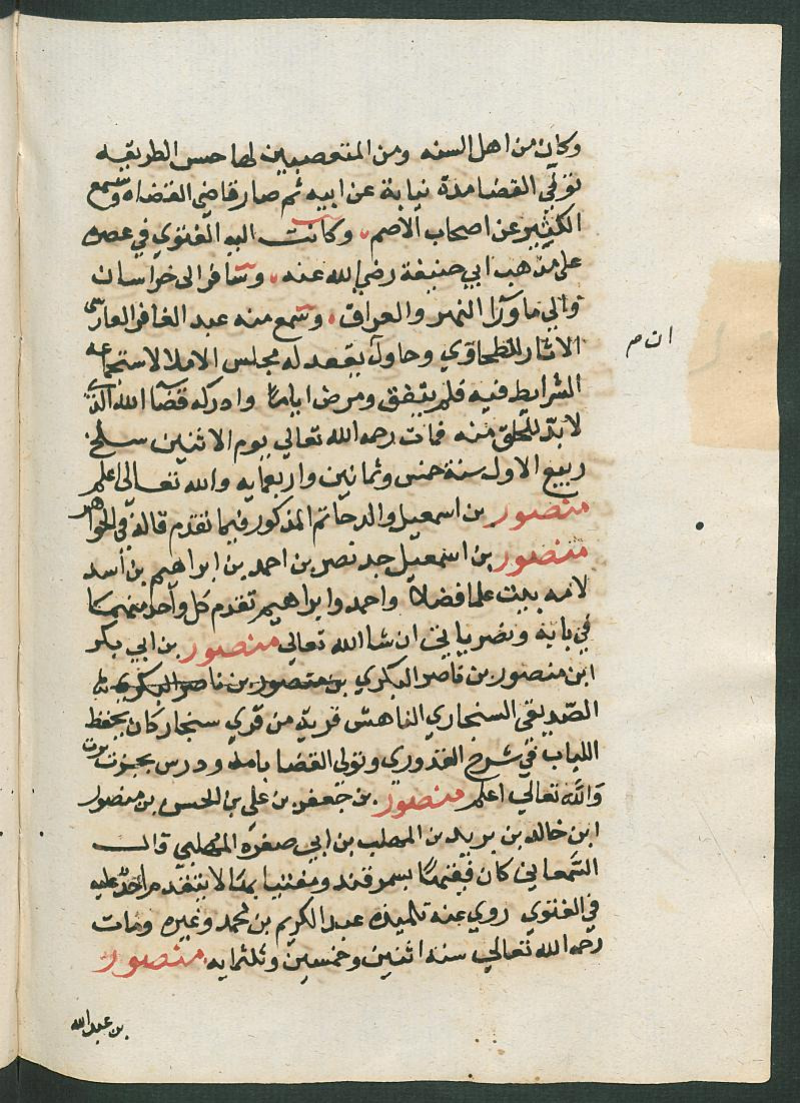 وكان من اهل السنه ومن المتعصبين لها حسن الطريقه
تولي القضا مدة نيابة عن ابيه ثم صار قاضي القضاه وسمع
الكثير عن اصحاب الاصم، وكانت اليه الفتوي في عصره
على مذهب ابي حنيفة رضي الله عنه، وسافر الى خراسان
والي ماورآ النهر والعراق، وسمع منه عبد الغافر الفارسي
الاثار للطحاوي وحاول بقعد له مجلس الاملا لاستجماعه
ان م
الشرايط فيه فلم يتفق ومرض اياما وادركه قضآ الله الذي
لا بد للخلق منه فمات رحمه الله تعالي يوم الاثنين سلخ
ربيع الاول سنة خمس وثمانين واربعمايه والله تعالى اعلم
منصور بن اسمعيل والد حاتم المذكور فيما تقدم قاله في الجواهر
منصور بن اسمعيل جد نصر بن احمد بن ابراهيم بن أسد
لامه بيت علما فضلا واحمد وابراهيم تقدم كل واحد منهما
في بابه ونصر ياتي ان شا الله تعالى منصور بن ابي بكر
ابن منصور بن ناصر البكري بن منصور بن ناصر البكري
الصديقي السنجاري الناهش قرية من قري سنجار كان يحفظ
اللباب في شرح القدوري وتولى القضا بامد ودرس
والله تعالى اعلم منصور بن جعفر بن علي بن الحسن بن منصور
ابن خالد بن يريد بن المهلب بن ابي صفره المهلبي قال
السمعاني كان فقيها بسمرقند ومفتيا بها لا يتقدم احد عليه
في الفتوي روي عنه تلميذه عبد الكريم بن محمد وغيره ومات
رحمه الله تعالي سنه اثنين وخمسين وثلثمايه منصور
بن عبد الله